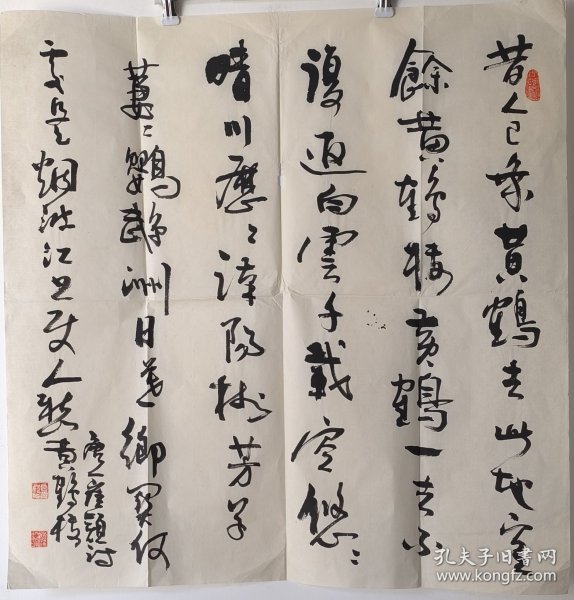 昔人已乘黄鶴去此地空
餘黄鶴楼黄鶴一去不
復返白雲千載空悠〻
晴川歷〻漢陽樹芳草
萋〻鸚鵡洲日暮鄉關何
處是烟波江上使人愁
唐崔顥詩
黄鶴楼
孔夫子旧书网
www.kongfz.com